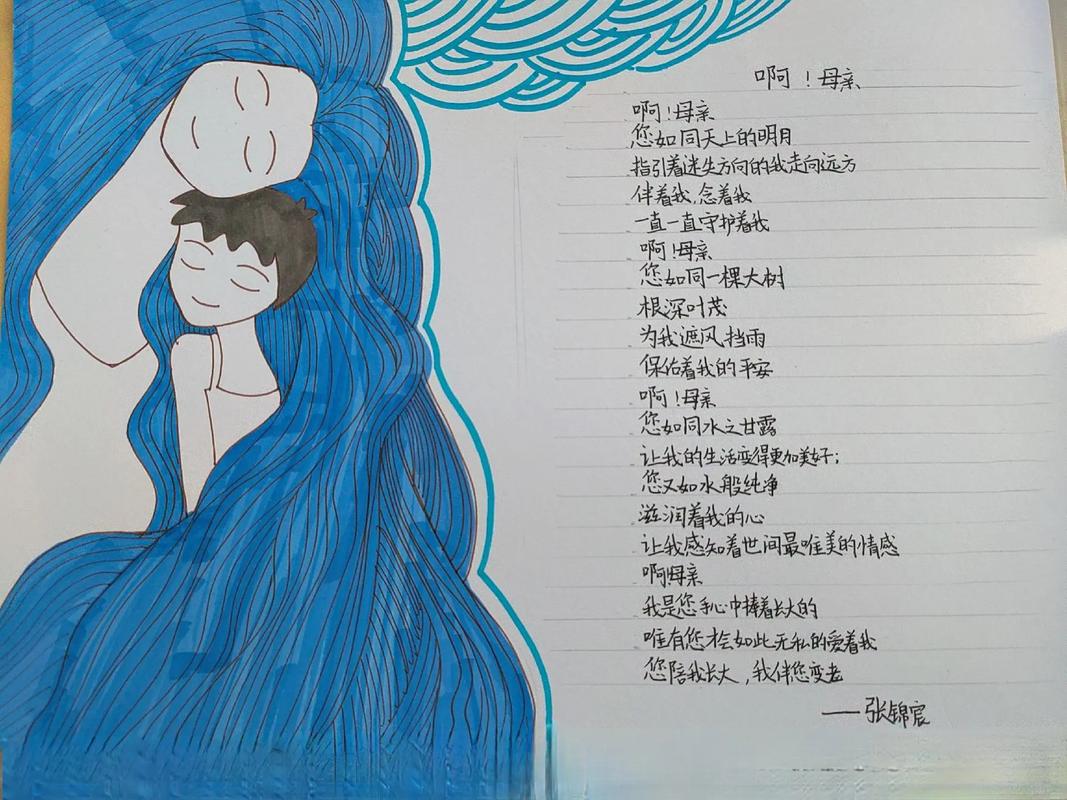 啊！母亲
啊！母亲
您如同天上的明月
指引着迷失方向的我走向远方
伴着我,念着我
一直一直守护着我
啊！母亲
您如同一棵大树
根深叶茂
为我遮风挡雨
保佑着我的平安
啊！母亲
您如同水之甘露
让我的生活变得更加美好；
您又如水般纯净
滋润着我的心
让我感知着世间最唯美的情感
啊！母亲
我是您手心中捧着长大的
唯有您才会如此无私的爱着我
您陪我长大，我伴您变老
——张锦宸